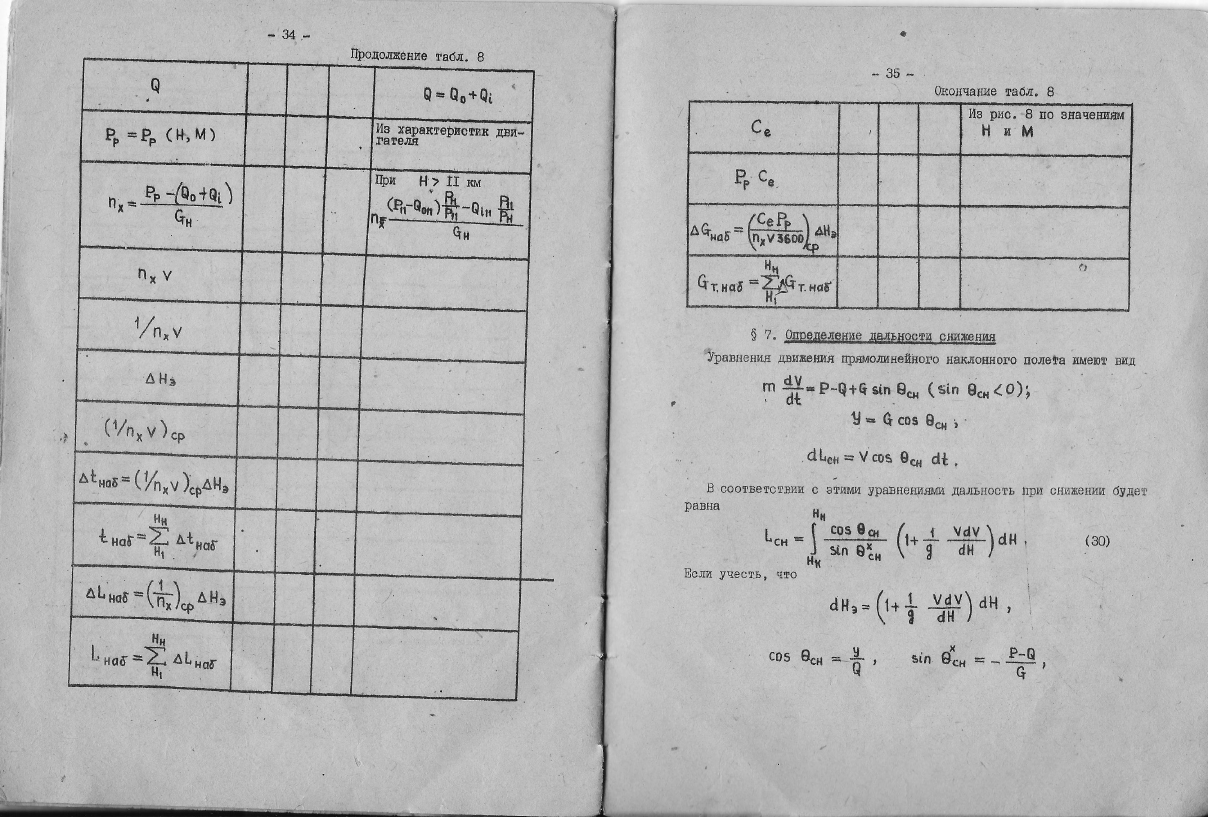 - 34 -
Продолжение табл. 8
Q
Q = Q₀ + Qᵢ
Pₚ = Pₚ (H, M)
Из характеристик дви-
гателя
nₓ = (Pₚ - (Q₀ + Qᵢ)) / Gн
При H > II км
nₓ = ((P₁₁ - Q₀₁₁) Pн/P₁₁ - Qᵢ₁₁ P₁₁/Pн) / Gн
nₓ V
1/nₓ V
Δ Hэ
(1/nₓ V)ср
Δtнаб = (1/nₓ V)ср ΔHэ
tнаб = Σ(H₁…Hн) Δtнаб
ΔLнаб = (1/nₓ)ср ΔHэ
Lнаб = Σ(H₁…Hн) ΔLнаб
- 35 -
Окончание табл. 8
Cе
Из рис. 8 по значениям
H и M
Pₚ Cе
ΔGнаб = (Cе Pₚ / nₓ V 3600)ср ΔHэ
Gт.наб = Σ(H₁…Hн) ΔGт.наб
§ 7. Определение дальности снижения
Уравнения движения прямолинейного наклонного полета имеют вид
m dV/dt = P - Q + G sin θсн (sin θсн < 0);
У = G cos θсн ;
dLсн = V cos θсн dt .
В соответствии с этими уравнениями дальность при снижении будет
равна
Lсн = ∫(Hк…Hн) cos θсн / sin θˣсн (1 + 1/g VdV/dH) dH . (30)
Если учесть, что
dHэ = (1 + 1/g VdV/dH) dH ,
cos θсн = У/Q , sin θˣсн = - (P-Q)/G ,